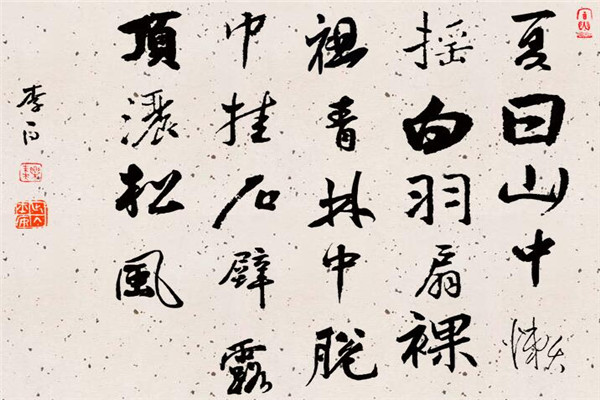 夏日山中懶
搖白羽扇裸
袒青林中脫
巾挂石壁露
頂灑松風
李白